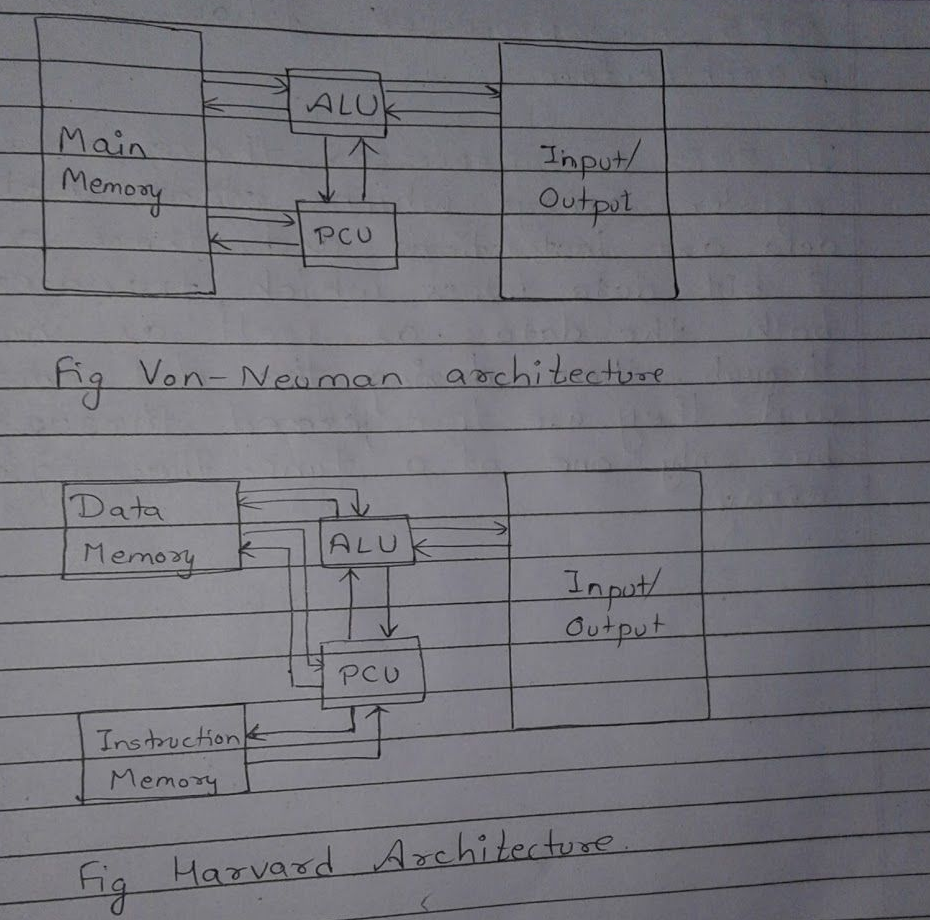 Main
Memory
ALU
PCU
Input/
Output
Fig Von-Neuman architecture
Data
Memory
ALU
PCU
Instruction
Memory
Input/
Output
Fig Harvard Architecture.